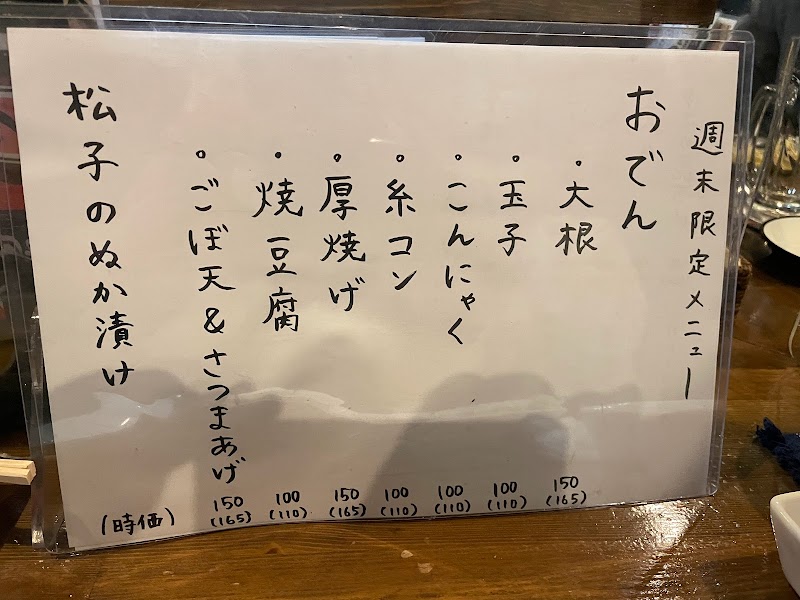 週末限定メニュー
おでん
・大根 150 (165)
・玉子 100 (110)
・こんにゃく 100 (110)
・糸コン 100 (110)
・厚焼げ 150 (165)
・焼豆腐 100 (110)
・ごぼ天&さつまあげ 150 (165)
松子のぬか漬け (時価)